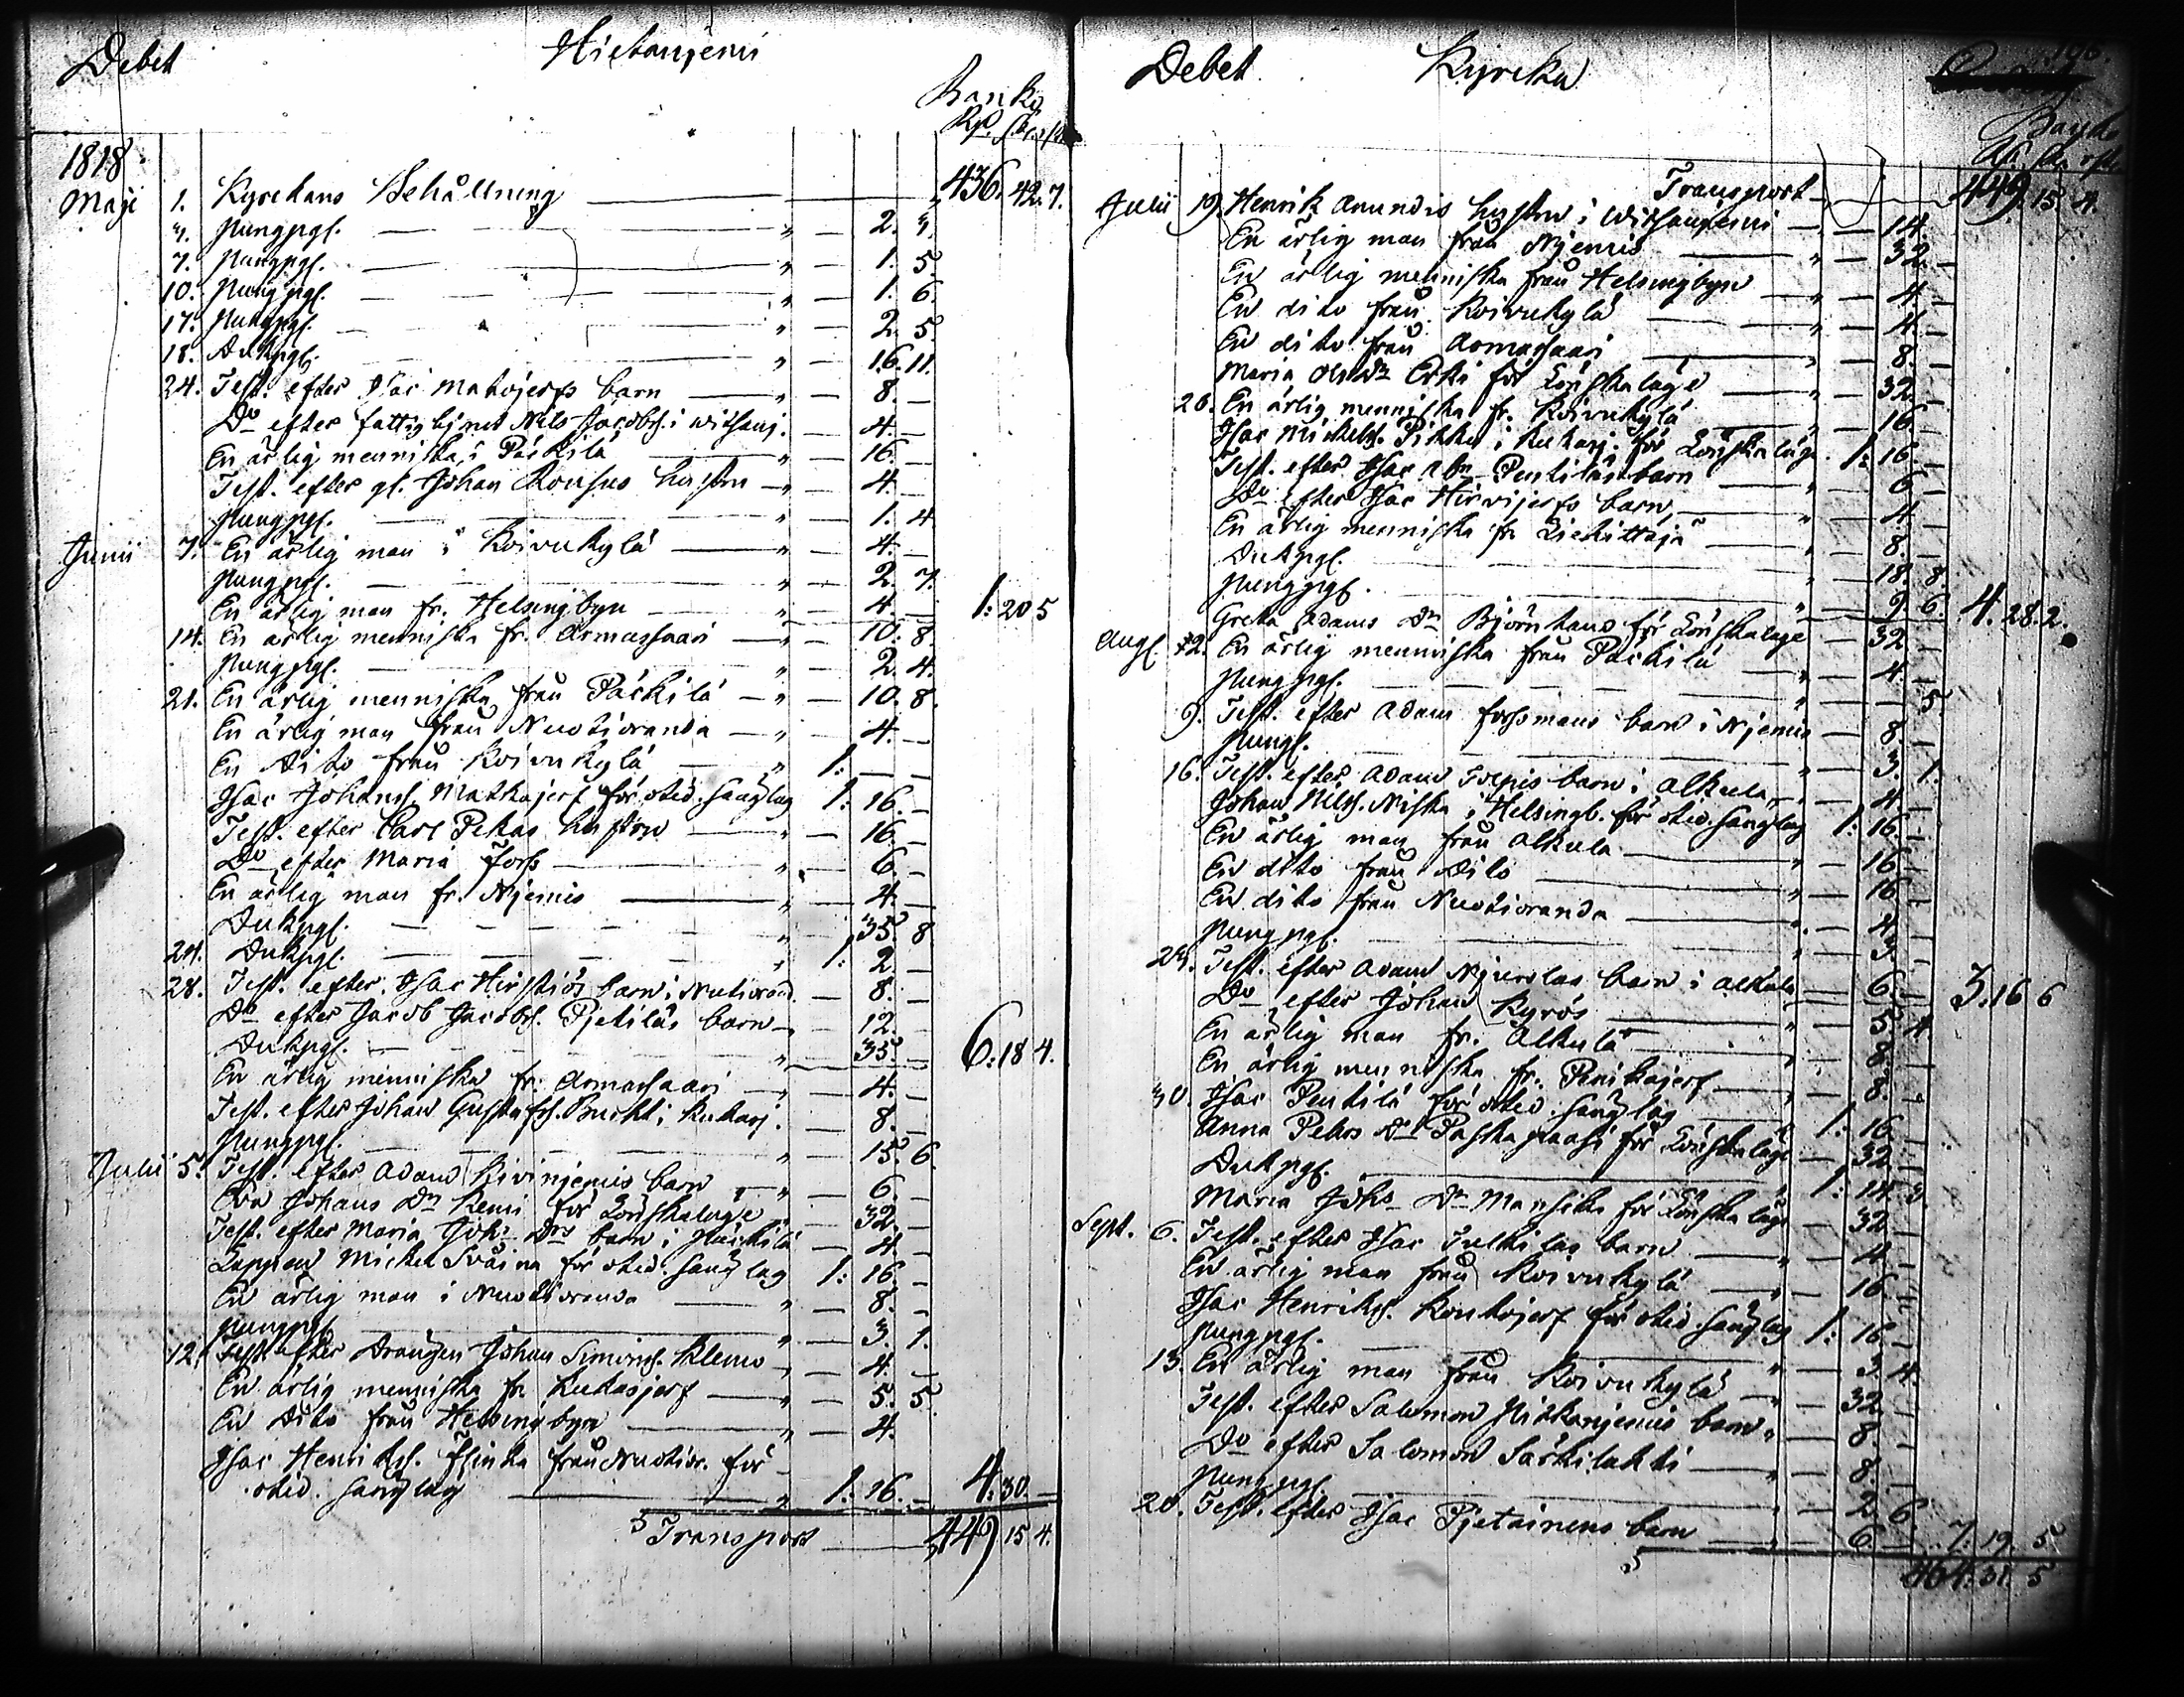 Debet Hietaniemi
Banko
Rd. sk. rst.
1818
Maji 1. Kyrckans Behållning — 436. 42. 7.
3. Pungpgr. — 2. 3.
7. Pungpgr. — 1. 5.
10. Pungpgr. — 1. 6.
17. Pungpgr. — 2. 5.
18. Dukpgr. — 16. 11.
24. Test. efter Isac Matojerfs barn — 8. —
Do efter fattighjonet Nils Jacobss. i Witsanj. — 4. —
En ärlig menniska i Päckilä — 16. —
Test. efter gl. Johan Rousus hustru — 4. —
Pungpgr. — 1. 4
Junii 7. En ärlig man i Koivukylä — 4. —
Pungpgr. — 2. 7.
En ärlig man fr. Helsingbyn — 4. — 1: 20 5
14. En ärlig menniska fr. Armassaari — 10. 8.
Pungpgr. — 2. 4.
21. En ärlig menniska från Päckilä — 10. 8.
En ärlig man från Nuotioranda — 4. —
En dito från Koivukylä — 1: — —
Isac Johanss. Matkajerf för otid. sänglag 1: 16. —
Test. efter Carl Pekas hustru — 16. —
Do efter Maria Forss — 6. —
En ärlig man fr. Njemis — 4. —
Dukpgr. — 35. 8
24. Dukpgr. — 1: 2. —
28. Test. efter Isac Hirstiös barn i Nutiorand. — 8. —
Do efter Jacob Jacobss. Pjetiläs barn — 12. —
Dukpgr. — 35. — 6: 18 4.
En ärlig menniska fr. Armassaari — 4. —
Test. efter Johan Gustafss. Buckt i Kukasj. — 8. —
Pungpgr. — 15. 6.
Julii 5. Test. efter Adam Kivinjemis barn — 6. —
Eva Johans Dr Kemi för Lönskaläge — 32. —
Test. efter Maria Joh. Drs barn i Päckilä — 4. —
Lappen Mickel Svåina för otid. sänglag 1: 16. —
En ärlig man i Nuotioranda — 8. —
Pungpgr. — 3. 1.
12. Test. efter Drängen Johan Simonss. Klemo — 4. —
En ärlig menniska fr. Kukasjerf — 5. 5.
En dito från Helsingbyn — 4.
Isac Henrikss. Flinka från Nuotior. för
otid. sänglag — 1: 16. — 4: 30. —
Transport — 449. 15 4.
Debet Kyrcka
Rd. sk. rst.
Transport — 449. 15 4.
Julii 19. Henrik Anundis hustru i Witsanjemi — 14. —
En ärlig man från Njemis — 32. —
En ärlig menniska från Helsingbyn — 4. —
En dito från Koivukylä — 4. —
En dito från Armassaari — 8. —
Maria Ols Dr Erki för Lönskaläge — 32. —
26. En ärlig menniska fr. Koivukylä — 16. —
Isac Mickelss. Pikku i Kukasj. för Lönskaläge 1: 16. —
Test. efter Isac Abr. Pentiläs barn — 6. —
Do efter Isac Hirvijerfs barn — 4. —
En ärlig menniska fr. Liekittäjä — 8. —
Dukpgr. — 18. 8.
Pungpgr. — 9. 6. 4. 28. 2.
Greta Adams Dr Björnhaus för Lönskaläge — 32 —
Aug. 2. En ärlig menniska från Päckilä — 4. —
Pungpgr. — 5.
9. Test. efter Adam Forssmans barn i Njemis — 8. —
Pungp. — 3. 1.
16. Test. efter Adam Tolpis barn i Alkula — 4. —
Johan Nilss. Niska i Helsingb. för otid. sänglag 1: 16. —
En ärlig man från Alkula — 16. —
En dito från dito — 16 —
En dito från Nuotioranda — 4. —
Pungpgr. — 3. —
23. Test. efter Adam Njurolas barn i Alkula — 6. — 3. 16 6
Do efter Johan Kyrös — 5. 4.
En ärlig man fr. Alkula — 8. —
En ärlig menniska fr. Penikajerf — 8. —
30. Isac Pentilä för otid. sänglag — 1: 16. —
Anna Pehrs Dr Paskapaasi för Lönskaläge — 32 —
Dukpgr. — 1: 14. 3.
Maria Johs Dr Mansika för Lönskaläge — 32. —
Sept. 6. Test. efter Isac Julkilas barn — 4. —
En ärlig man från Koivukylä — 16 —
Isac Henrikss. Konkajerf för otid. sänglag 1: 16 —
Pungpgr. — 3 4.
13. En ärlig man från Koivukylä — 32. —
Test. efter Salomon Hietanjemis barn — 8. —
Do efter Salomon Särkilahti — 8. —
Pungpgr. — 2. 6.
20. Test. efter Isac Pjetäinens barn — 6. — 7. 19. 5
464. 31. 5